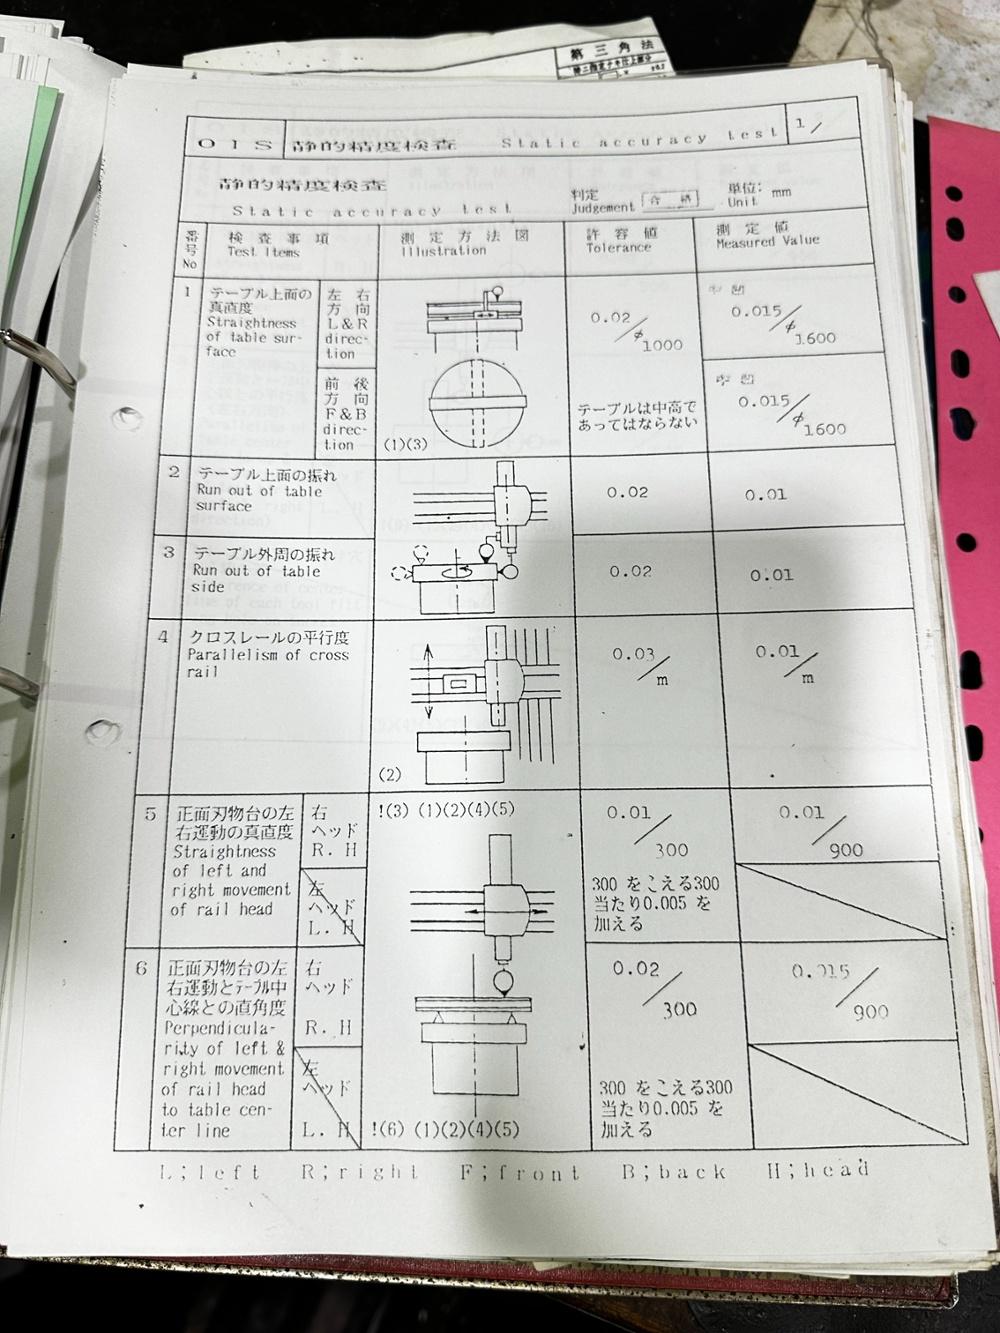 第三角法
O I S 静的精度検査 Static accuracy test 1/
静的精度検査
Static accuracy test
判定
Judgement 合格
単位: mm
Unit
番号
No
検査事項
Test Items
測定方法図
Illustration
許容値
Tolerance
測定値
Measured Value
1
テーブル上面の
真直度
Straightness
of table sur-
face
左右
方向
L&R
direc-
tion
前後
方向
F&B
direc-
tion
(1)(3)
0.02/φ1000
テーブルは中高で
あってはならない
中凹
0.015/φ1600
中凹
0.015/φ1600
2
テーブル上面の振れ
Run out of table
surface
0.02
0.01
3
テーブル外周の振れ
Run out of table
side
0.02
0.01
4
クロスレールの平行度
Parallelism of cross
rail
(2)
0.03/m
0.01/m
5
正面刃物台の左
右運動の真直度
Straightness
of left and
right movement
of rail head
右
ヘッド
R. H
左
ヘッド
L. H
!(3) (1)(2)(4)(5)
0.01/300
300 をこえる300
当たり0.005 を
加える
0.01/900
6
正面刃物台の左
右運動とテーブル中
心線との直角度
Perpendicula-
rity of left &
right movement
of rail head
to table cen-
ter line
右
ヘッド
R. H
左
ヘッド
L. H
!(6) (1)(2)(4)(5)
0.02/300
300 をこえる300
当たり0.005 を
加える
0.015/900
L;left R;right F;front B;back H;head